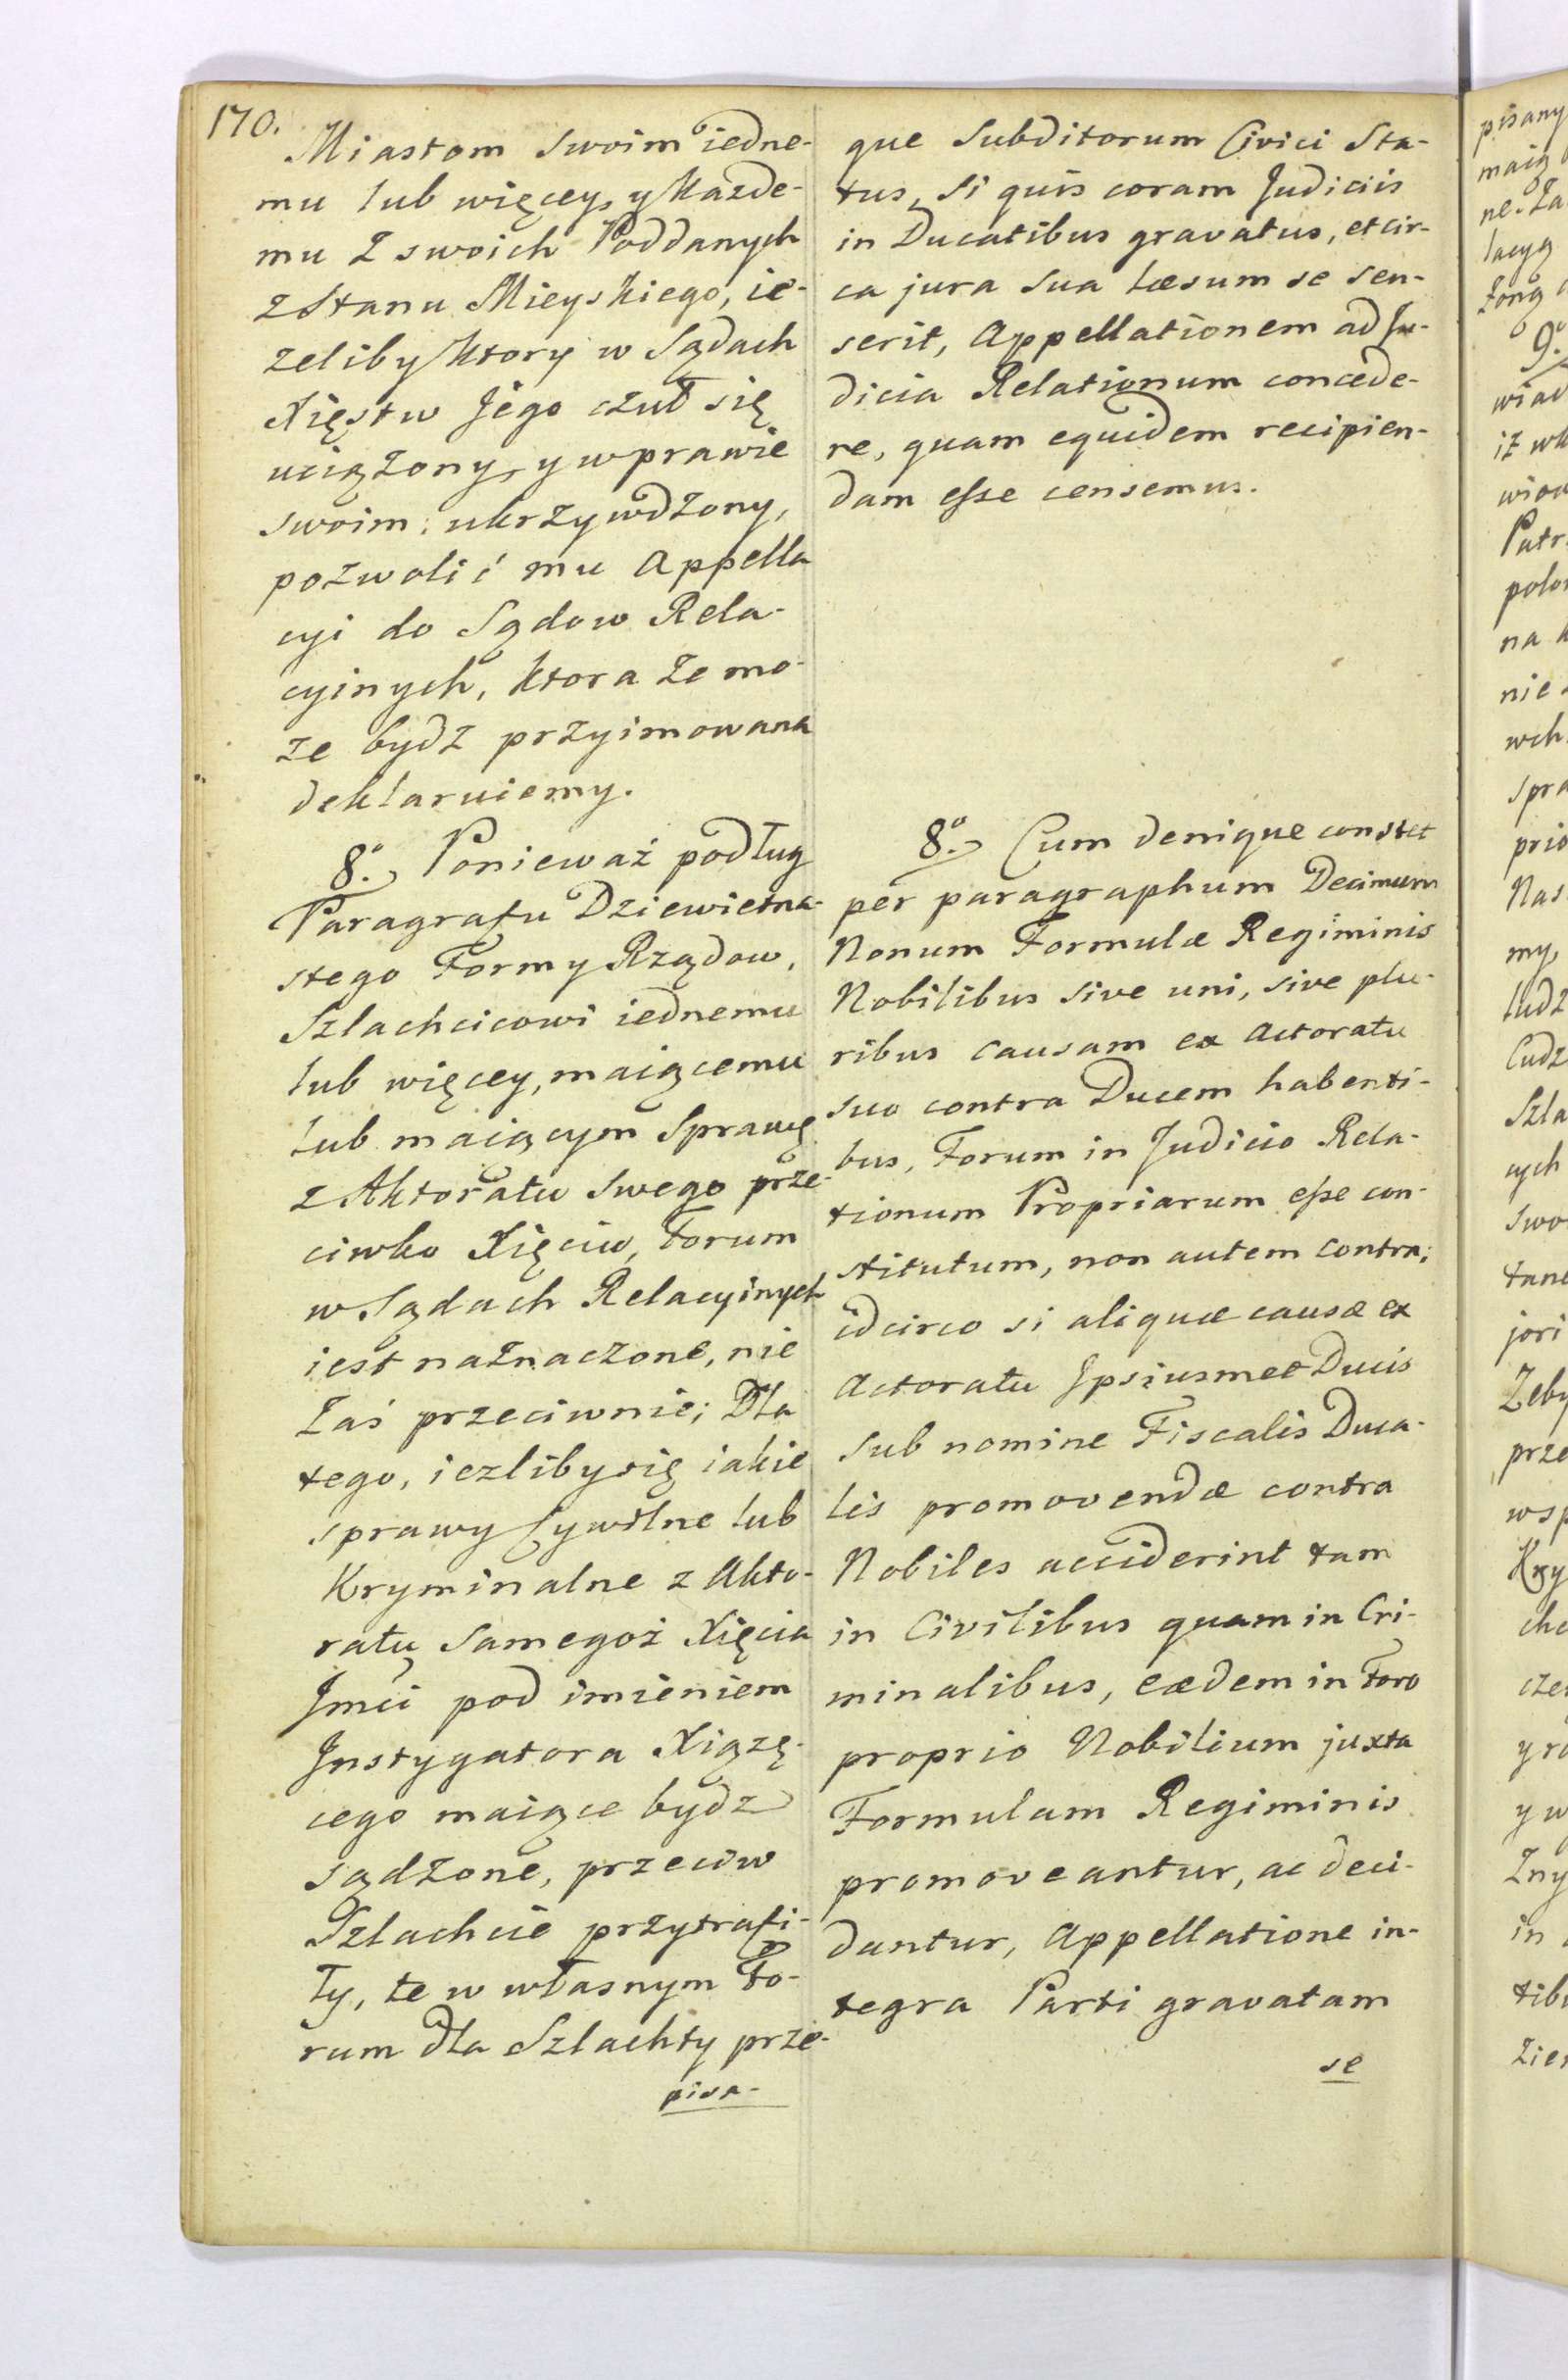 170.
Miastom swoim iedne-
mu lub więcey, y każde-
mu z swoich Poddanych
z Stanu Mieyskiego, ie-
zeliby ktory w Sądach
Xięstw Jego czuł się
uciązony, y w prawie
swoim ukrzywdzony,
pozwolić mu Appella
cyi do Sądow Rela-
cyinych, ktora ze mo-
ze bydz przyimowana
deklaruiemy.
8.º Ponieważ podług
Paragrafu Dziewietna-
stego Formy Rządow,
Szlachcicowi iednemu
lub więcey, maiącemu
lub maiącym Sprawę
z Aktoratu swego prze-
ciwko Xięciu, Forum
w Sądach Relacyinych
iest naznaczone, nie
zaś przeciwnie; Dla
tego, iezliby się iakie
sprawy Cywilne lub
Kryminalne z Akto-
ratu samegoż Xięcia
Jmci pod imieniem
Instygatora Xiązę-
cego maiące bydz
sądzone, przeciw
Szlachcie przytrafi-
ły, te w własnym Fo-
rum dla Szlachty prze-
pisa-
que Subditorum Civici Sta-
tus, Si quis coram Judiciis
in Ducatibus gravatus, et cir-
ca jura sua læsum se sen-
serit, Appellationem ad Ju-
dicia Relationum concede-
re, quam equidem recipien-
dam esse censemus.
8.º Cum denique constet
per paragraphum Decimum
Nonum Formulæ Regiminis
Nobilibus sive uni, sive plu-
ribus causam ex Actoratu
suo contra Ducem habenti-
bus, Forum in Judicio Rela-
tionum Propriarum esse con-
stitutum, non autem contra;
idcirco si aliquæ causæ ex
Actoratu Ipsiusmet Ducis
sub nomine Fiscalis Duca-
lis promovendæ contra
Nobiles acciderint tam
in Civilibus quam in Cri-
minalibus, eædem in Foro
proprio Nobilium juxta
Formulam Regiminis
promoveantur, ac deci-
dantur, Appellatione in-
tegra Parti gravatam
se
pisany
maią
ne. Za
lacyą
zoną
9.º
wiad
iż wk
wiow
Patr
polon
na
nie
wch
spra
prio
Nas
my,
ludz
Cudz
Szla
cych
swo
tane
jori
Zeby
prze
wsp
Kry
che
czen
y ro
y w
zny
in
tibu
zien